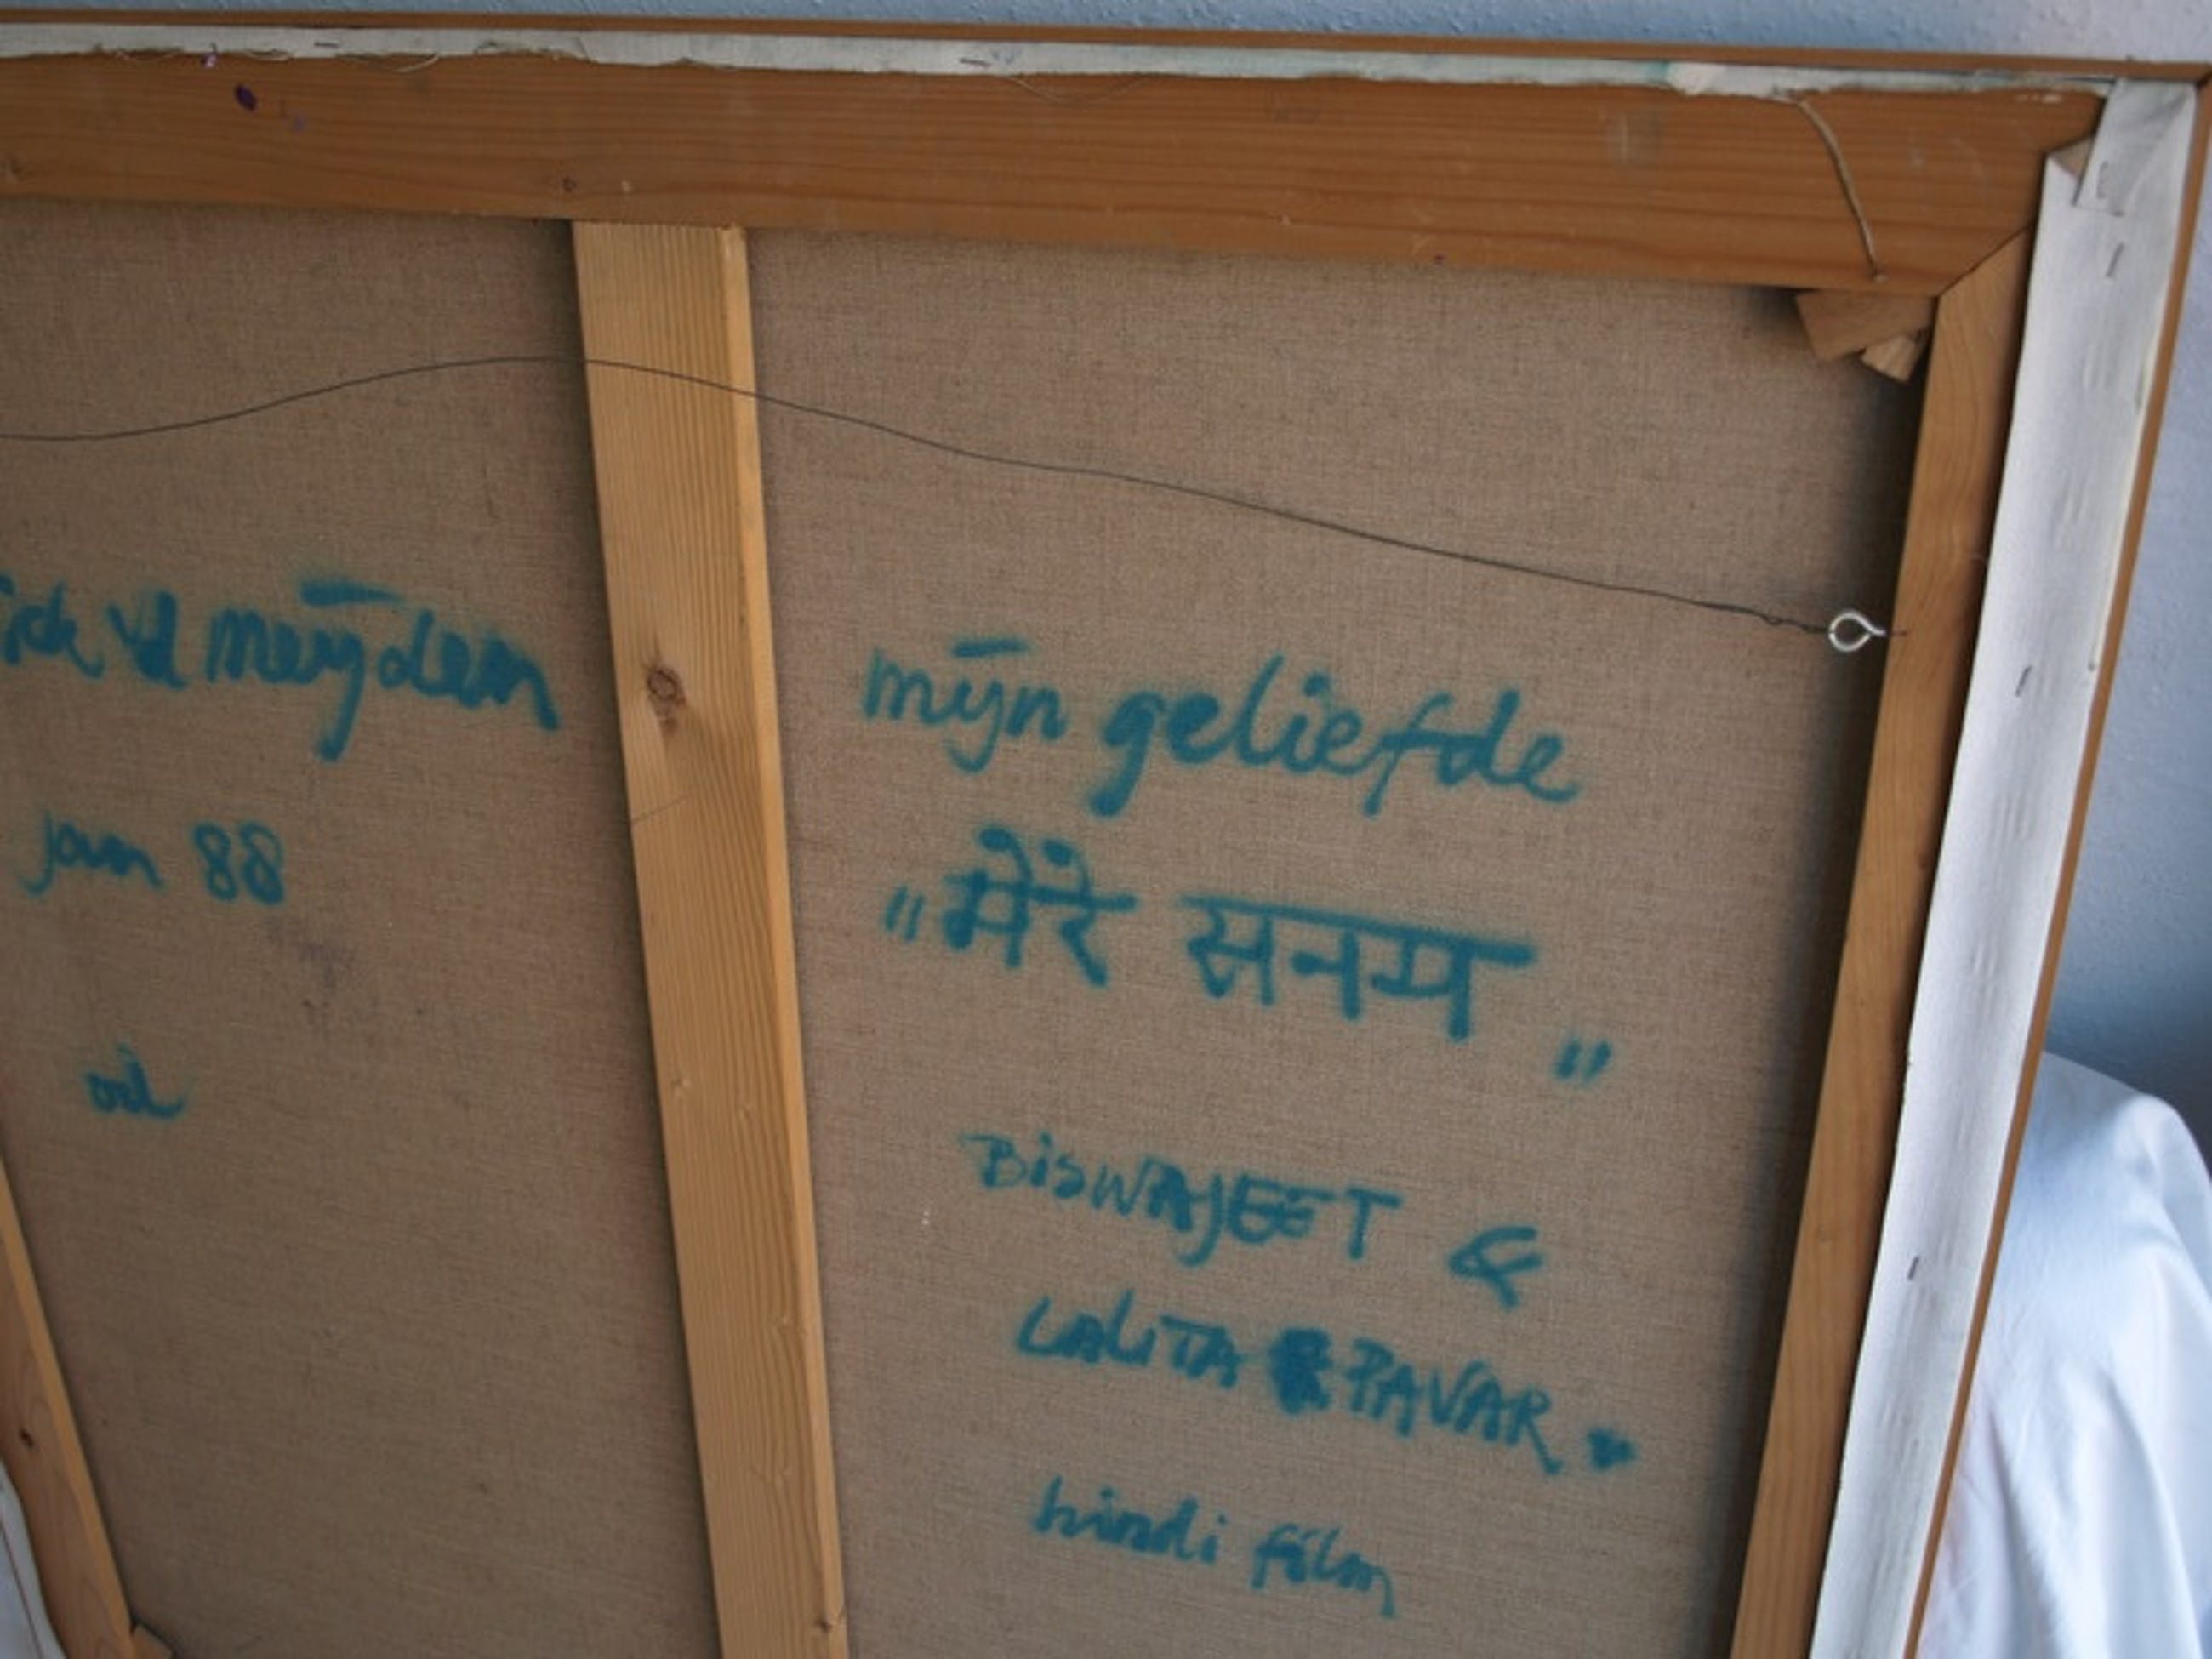 vd meijden
jan 88
mijn geliefde
"मेरे सनम"
BiSWAJEET &
LALiTA PAVAR.
hindi film